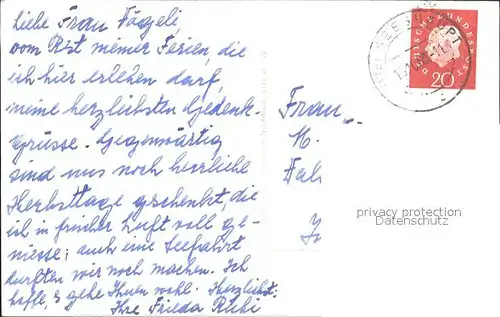 Liebe Frau Fögeli
vom Rest meiner Ferien, die
ich hier erleben darf,
meine herzlichsten Gedenk-
grüsse. Gegenwärtig
sind uns noch herrliche
Herbsttage geschenkt, die
ich in frischer Luft voll ge-
niesse; auch eine Seefahrt
durften wir noch machen. Ich
hoffe, es gehe Ihnen wohl. Herzlichst:
Ihre Frieda
DEUTSCHE BUNDESPOST
20
Frau
M.
privacy protection
Datenschutz